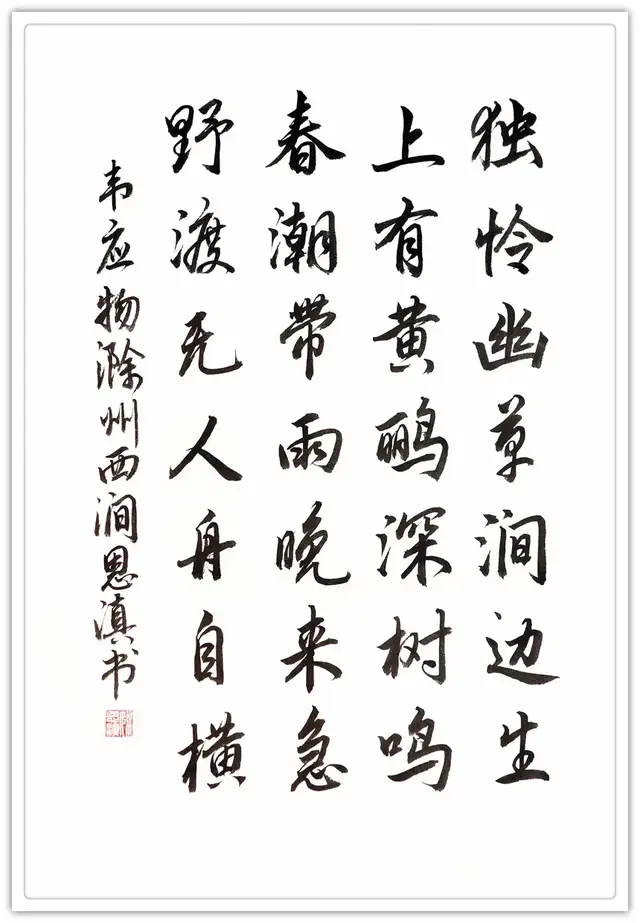 独怜幽草涧边生
上有黄鹂深树鸣
春潮带雨晚来急
野渡无人舟自横
韦应物滁州西涧恩滇书